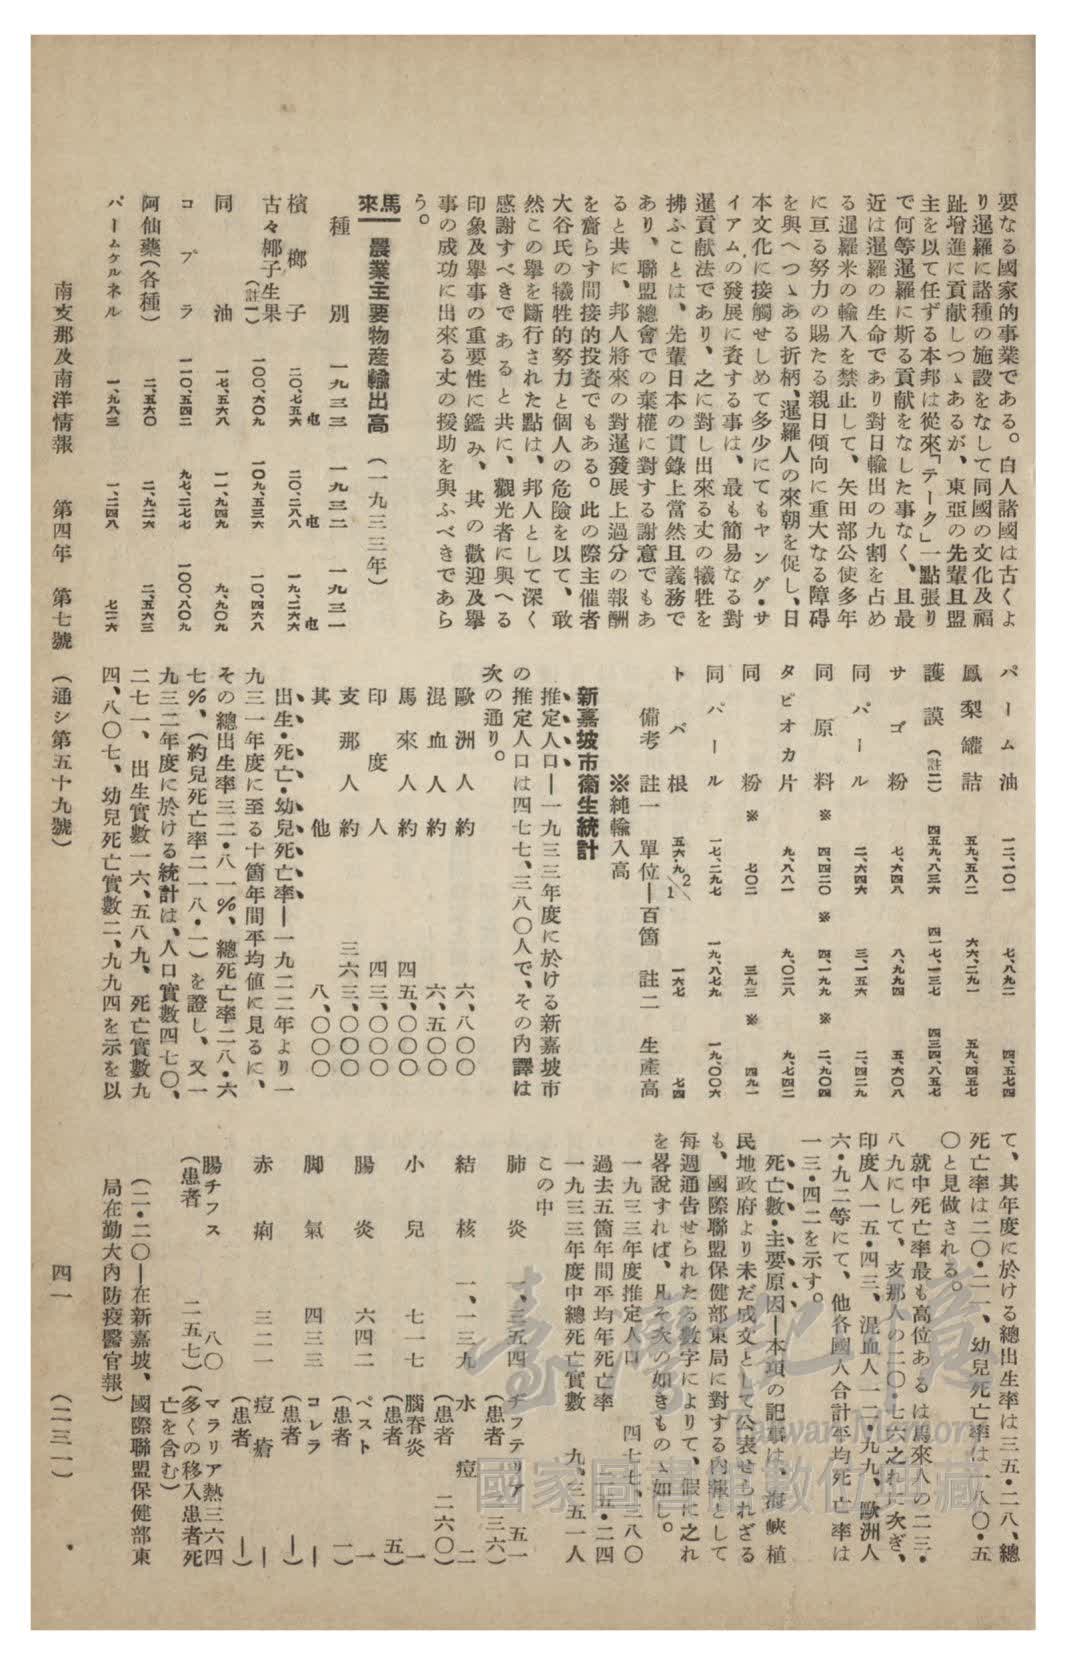 要なる國家的事業である。白人諸國は古くよ
り暹羅に諸種の施設をなして同國の文化及福
趾增進に貢献しつゝあるが、東亞の先輩且盟
主を以て任ずる本邦は從來「テーク」一點張り
で何等暹羅に斯る貢献をなした事なく、且最
近は暹羅の生命であり對日輸出の九割を占め
る暹羅米の輸入を禁止して、矢田部公使多年
に亘る努力の賜たる親日傾向に重大なる障碍
を與へつゝある折柄、暹羅人の來朝を促し、日
本文化に接觸せしめて多少にてもヤング・サ
イアムの發展に資する事は、最も簡易なる對
暹貢献法であり、之に對し出來る丈の犠牲を
拂ふことは、先輩日本の貫錄上當然且義務で
あり、聯盟總會での棄權に對する謝意でもあ
ると共に、邦人將來の對暹發展上過分の報酬
を齎らす間接的投資でもある。此の際主催者
大谷氏の犠牲的努力と個人の危險を以て、敢
然この擧を斷行された點は、邦人として深く
感謝すべきであると共に、觀光者に與へる
印象及擧事の重要性に鑑み、其の歡迎及擧
事の成功に出來る丈の援助を與ふべきであら
う。
馬來 農業主要物産輸出高 (一九三三年)
種別 一九三三 一九三二 一九三一
瓲 瓲 瓲
檳榔子 二〇、七五六 二〇、二八八 一九、二六六
古々椰子生果(註一) 一〇〇、六〇九 一〇九、五三六 一〇、四六八
同油 一七、五六八 一一、九四九 九、九〇九
コプラ 一一〇、五四二 九七、二七七 一〇〇、八〇九
阿仙藥(各種) 二、五六〇 二、九二六 二、五六三
パームケルネル 一、九八三 一、二四八 七二六
パーム油 一二、一〇一 七、八九二 四、五七四
鳳梨罐詰 五九、五八二 六六、二九一 五九、四五七
護謨(註二) 四五九、八三六 四一七、一三七 四三四、八五七
サゴ粉 七、六四八 八、九九四 五、六〇八
同パール 二、六四六 三、一五六 二、四二九
同原料 ※ 四、四二〇 ※ 四、一九九 ※ 二、九〇四
タピオカ片 九、八八一 九、〇二八 九、七四二
同粉 ※ 七〇二 三九三 ※ 四九一
同パール 一七、二九七 一九、八七九 一九、〇〇六
トバ根 五六・九1/2 一六七 七四
備考 註一 單位―百箇 註二 生產高
※純輸入高
新嘉坡市衞生統計
推定人口―一九三三年度に於ける新嘉坡市
の推定人口は四七七、三八〇人で、その內譯は
次の通り。
歐洲人 約 六、八〇〇
混血人 約 六、五〇〇
馬來人 約 四五、〇〇〇
印度人 四三、〇〇〇
支那人 約 三六三、〇〇〇
其他 八、〇〇〇
出生・死亡・幼兒死亡率―一九二二年より一
九三一年度に至る十箇年間平均値に見るに、
その總出生率三二・八一%、總死亡率二八・六
七%、(約兒死亡率二一八・一)を證し、又一
九三二年度に於ける統計は、人口實數四七〇、
二七一、出生實數一六、五八九、死亡實數九
四、八〇七、幼兒死亡實數二、九九四を示を以
て、其年度に於ける總出生率は三五・二八、總
死亡率は二〇・二一、幼兒死亡率は一八〇・五
〇と見做される。
就中死亡率最も高位あるは馬來人の二三・
八九にして、支那人の二〇・七六之れに次ぎ、
印度人一五・四三、混血人一二・九九、歐洲人
六・九二等にて、他各國人合計平均死亡率は
一三・四二を示す。
死亡數・主要原因―本項の記事は、海峽植
民地政府より未だ成文として公表せられざる
も、國際聯盟保健部東局に對する內報として
每週通告せられたる數字によりて、假に之れ
を畧說すれば、凡そ次の如きものゝ如し。
一九三三年度推定人口 四七七、三八〇
過去五箇年間平均年死亡率 五・二四
一九三三年度中總死亡實數 九、三五一人
この中
肺炎 一、三五四 チフテリア 五一
(患者 三六)
結核 一、一三九 水痘 二
(患者 二六〇)
小兒 七一七 腦脊炎 一
(患者 五)
腸炎 六四二 ペスト 一
(患者 一)
脚氣 四三三 コレラ ―
(患者 ―)
赤痢 三二一 痘瘡 ―
(患者 ―)
腸チフス 八〇 マラリア熱三六四
(患者 二五七) (多くの移入患者死
亡を含む)
(二・二〇―在新嘉坡、國際聯盟保健部東
局在勤大內防疫醫官報)
南支那及南洋情報 第四年 第七號 (通シ第五十九號) 四一 (二三一)
臺灣記憶
Taiwan Memory
國家圖書館數位典藏